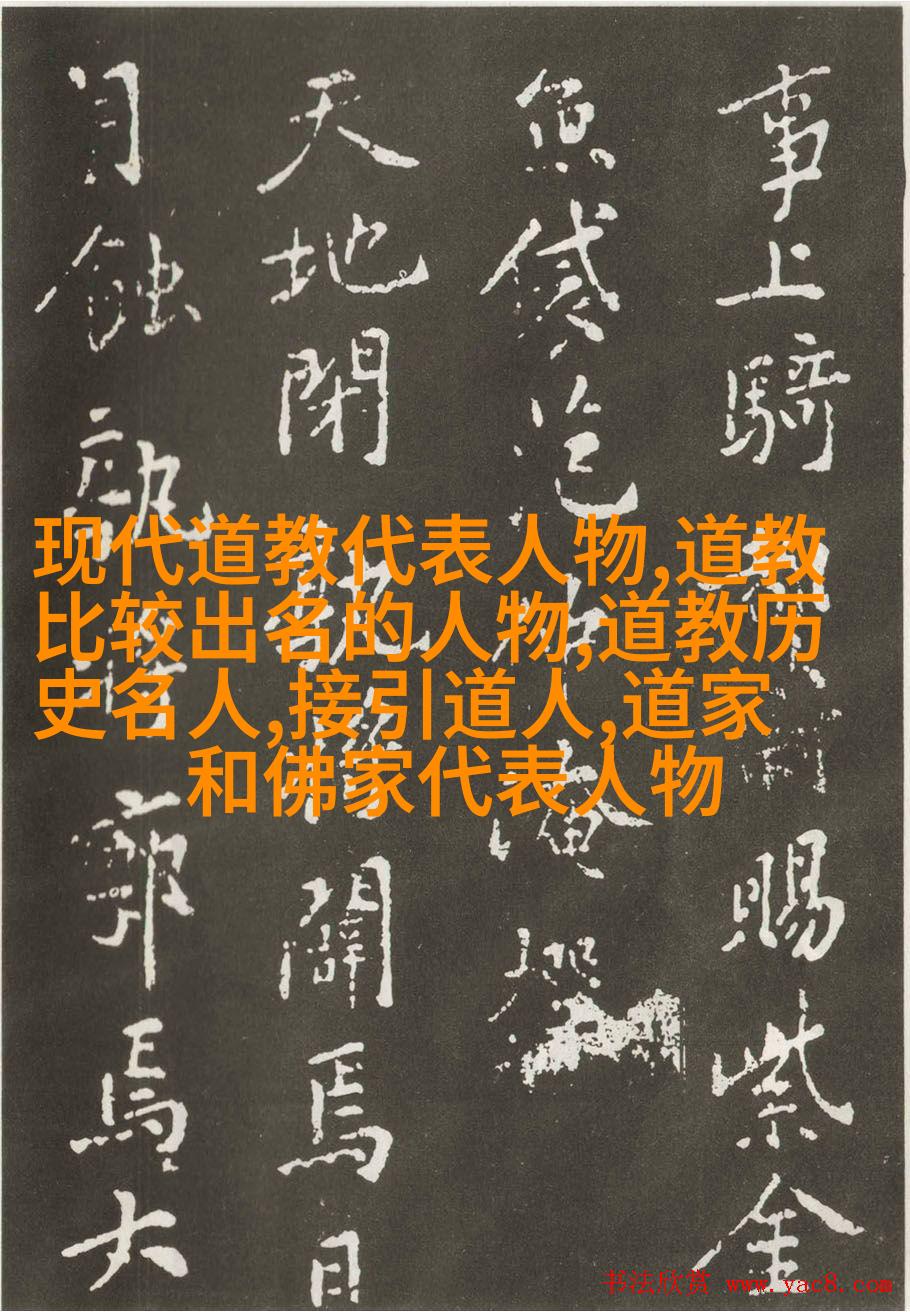 事上騎賜紫金
魚袋范撰
天地閉闢焉日
月蝕焉大
现代道教代表人物,道教
比较出名的人物,道教历
史名人,接引道人,道家
和佛家代表人物
书法欣赏 www.yac8.com